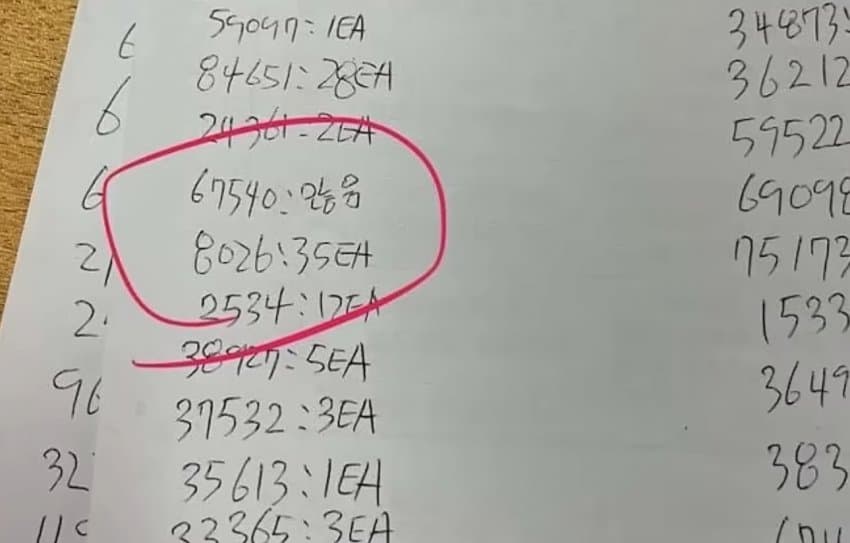 59097:1EA
84651:28EA
24361:2EA
67540:많음
8026:35EA
2534:12EA
38927:5EA
37532:3EA
35613:1EA
33365:3EA
34873:
36212
59522
69098
75173
1533
3649
383
6
6
6
2,
2.
96
32